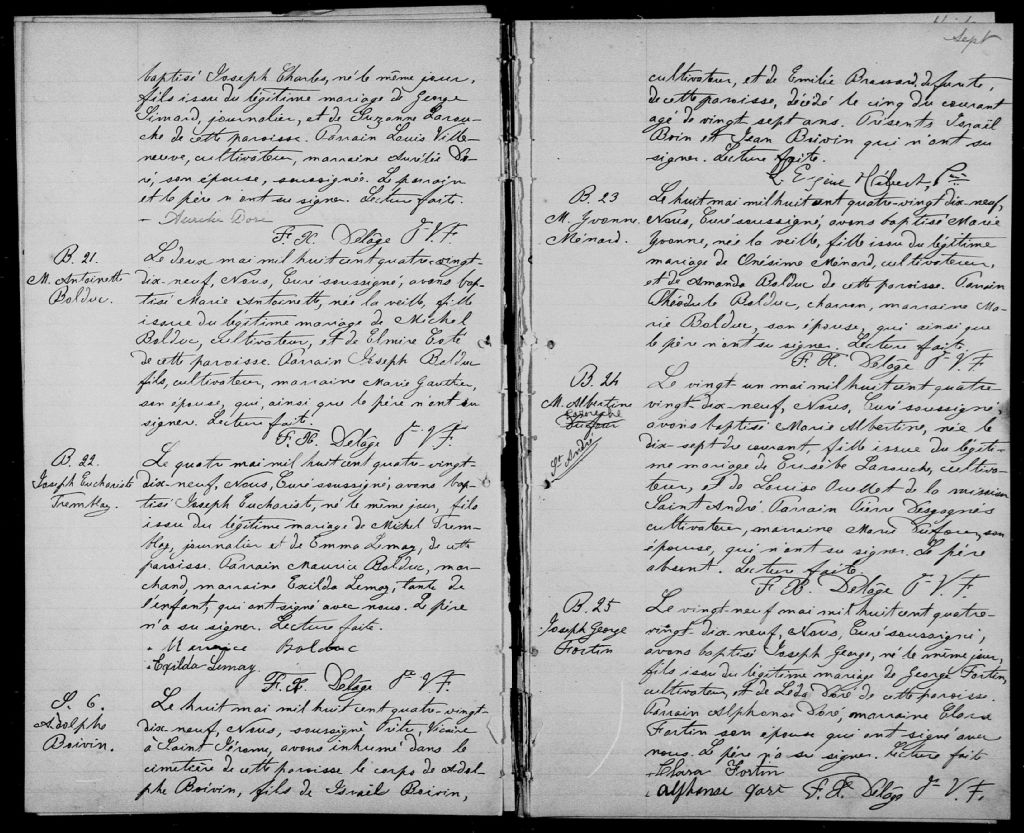 baptisé Joseph Charles, né le même jour,
fils issu du légitime mariage de George
Simard, journalier, et de Suzanne Larou-
che de cette paroisse. Parrain Louis Ville-
neuve, cultivateur, marraine Aurélie Do-
ré, son épouse, soussignée. Le parrain
et le père n'ont su signer. Lecture faite.
- Aurelie Dore
F. X. Delâge Ptr V. F.
B. 21.
M. Antoinette
Bolduc.
Le deux mai mil huit cent quatre-vingt-
dix-neuf, Nous, Curé soussigné, avons bap-
tisé Marie Antoinette, née la veille, fille
issue du légitime mariage de Michel
Bolduc, cultivateur, et de Elmire Coté
de cette paroisse. Parrain Joseph Bolduc
fils, cultivateur, marraine Marie Gauthier,
son épouse, qui, ainsi que le père n'ont su
signer. Lecture faite.
F. X. Delâge Ptr V. F.
B. 22.
Joseph Euchariste
Tremblay.
Le quatre mai mil huit cent quatre-vingt-
dix-neuf, Nous, Curé soussigné, avons bap-
tisé Joseph Euchariste, né le même jour, fils
issu du légitime mariage de Michel Trem-
blay, journalier et de Emma Lemay, de cette
paroisse. Parrain Maurice Bolduc, mar-
chand, marraine Exilda Lemay, tante de
l'enfant, qui ont signé avec nous. Le père
n'a su signer. Lecture faite.
Maurice Bolduc
Exilda Lemay.
F. X. Delâge Ptr V. F.
S. 6.
Adolphe
Boivin.
Le huit mai mil huit cent quatre-vingt-
dix-neuf, Nous, soussigné Prêtre, Vicaire
à Saint Jérome, avons inhumé dans le
cimetière de cette paroisse le corps de Adol-
phe Boivin, fils de Israël Boivin,
Sept
cultivateur, et de Emilie Brassard, defunte,
de cette paroisse, décédé le cinq du courant
agé de vingt sept ans. Présents Israël
Boivin et Jean Boivin qui n'ont su
signer. Lecture faite.
Eugène Hébert, Ptre
B. 23
M. Yvonne
Ménard.
Le huit mai mil huit cent quatre-vingt dix neuf,
Nous, Curé soussigné, avons baptisé Marie
Yvonne, née la veille, fille issu du légitime
mariage de Onésime Ménard, cultivateur,
et de Amanda Bolduc de cette paroisse. Parrain
Théodule Bolduc, charon, marraine Ma-
rie Bolduc, son épouse, qui ainsi que
le père n'ont su signer. Lecture faite.
F. X. Delâge Ptr V. F.
B. 24
M. Albertine
Larouche
Dufour
St André
Le vingt un mai mil huit cent quatre
vingt-dix-neuf, Nous, Curé soussigné,
avons baptisé Marie Albertine, née le
dix-sept du courant, fille issue du légiti-
me mariage de Eusèbe Larouche, cultiva-
teur, et de Louise Ouellet de la mission
Saint André. Parrain Pierre Desgagnés
cultivateur, marraine Marie Dufour, son
épouse, qui n'ont su signer. Le père
absent. Lecture faite.
F. X. Delâge Ptr V. F.
B. 25
Joseph George
Fortin
Le vingt neuf mai mil huit cent quatre-
vingt-dix-neuf, Nous, Curé soussigné,
avons baptisé Joseph George, né le même jour,
fils issu du légitime mariage de George Fortin,
cultivateur, et de Léda Doré de cette paroisse.
Parrain Alphonse Doré, marraine Clara
Fortin son epouse qui ont signé avec
nous. Le père n'a su signer. Lecture faite
Clara Fortin
Alphonse Dore F. X. Delâge Ptr V. F.